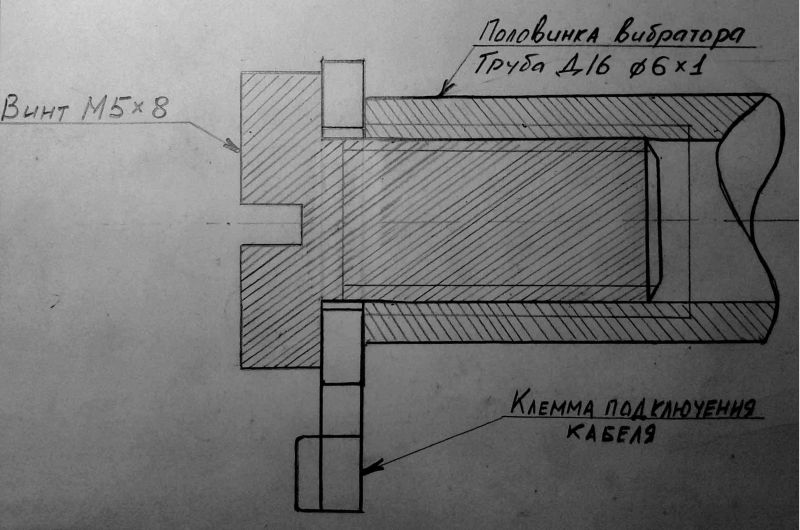 Половинка вибратора
Труба Д16 ϕ6×1
Винт М5×8
Клемма подключения
кабеля